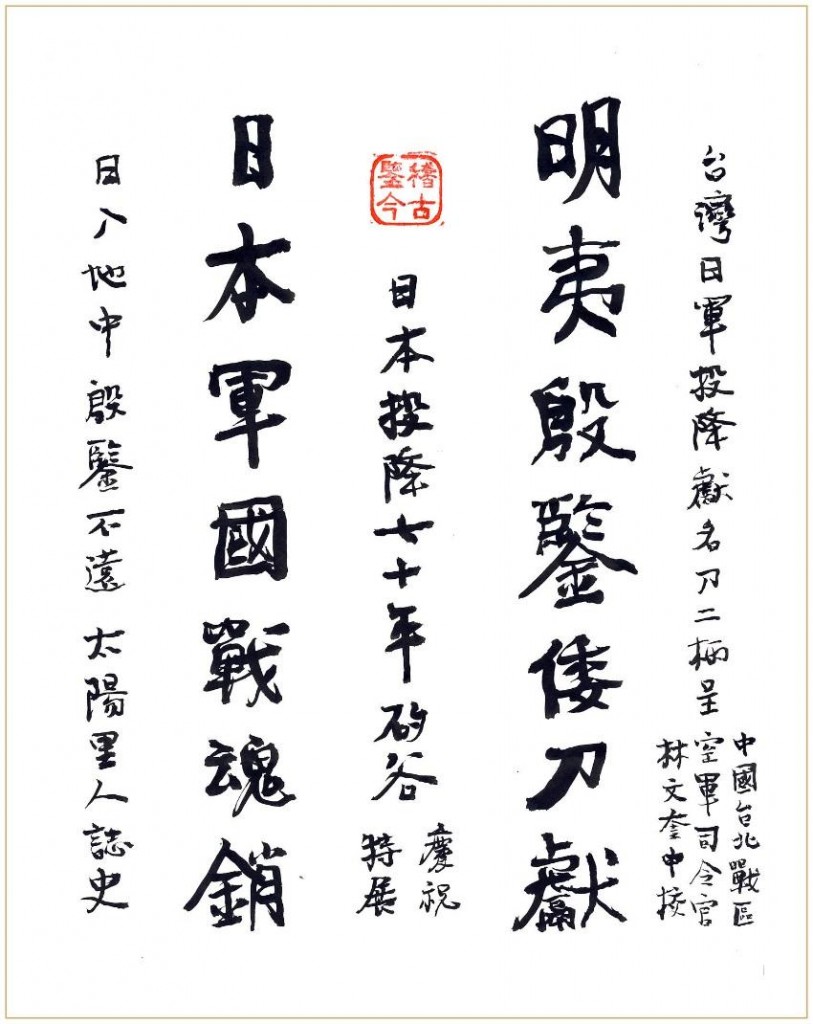 台灣日軍投降獻名刀二柄呈
中國台北戰區
空軍司令官
林文奎中校
明夷殷鑒倭刀獻
稽古
鑒今
日本投降七十年矽谷
慶祝
特展
日本軍國戰魂銷
日入地中殷鑒不遠 太陽里人誌史